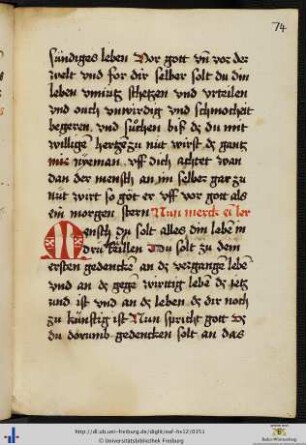 74
sündiges leben Vor gott vn̄ vor der
welt vnd for dir selber solt du din
leben vnnutz schetzen vnd vrteilen
vnd ouch vnwirdig vnd schmocheit
begeren vnd suͦchen biß dz du mit
willigem hertze zu nüt wirst dz gantz
nie nyeman vff dich achtet wan
dan der mensch an im selber gar zu
nüt wirt so got er vff vor gott als
ein morgen stern Nun merck ei ler
Mensch du solt alles din lebē in
drü teillen Du solt zu dem
ersten gedencken an dz vergangē lebē
vnd an dz gegē wirtig lebē dz jetz
zund ist vnd an dz leben dz dir noch
zu künftig ist Nun spricht gott dz
du dorumb gedencken solt an das
http://dl.ub.uni-freiburg.de/diglit/suf-hs12/0151
© Universitätsbibliothek Freiburg
Baden-Württemberg